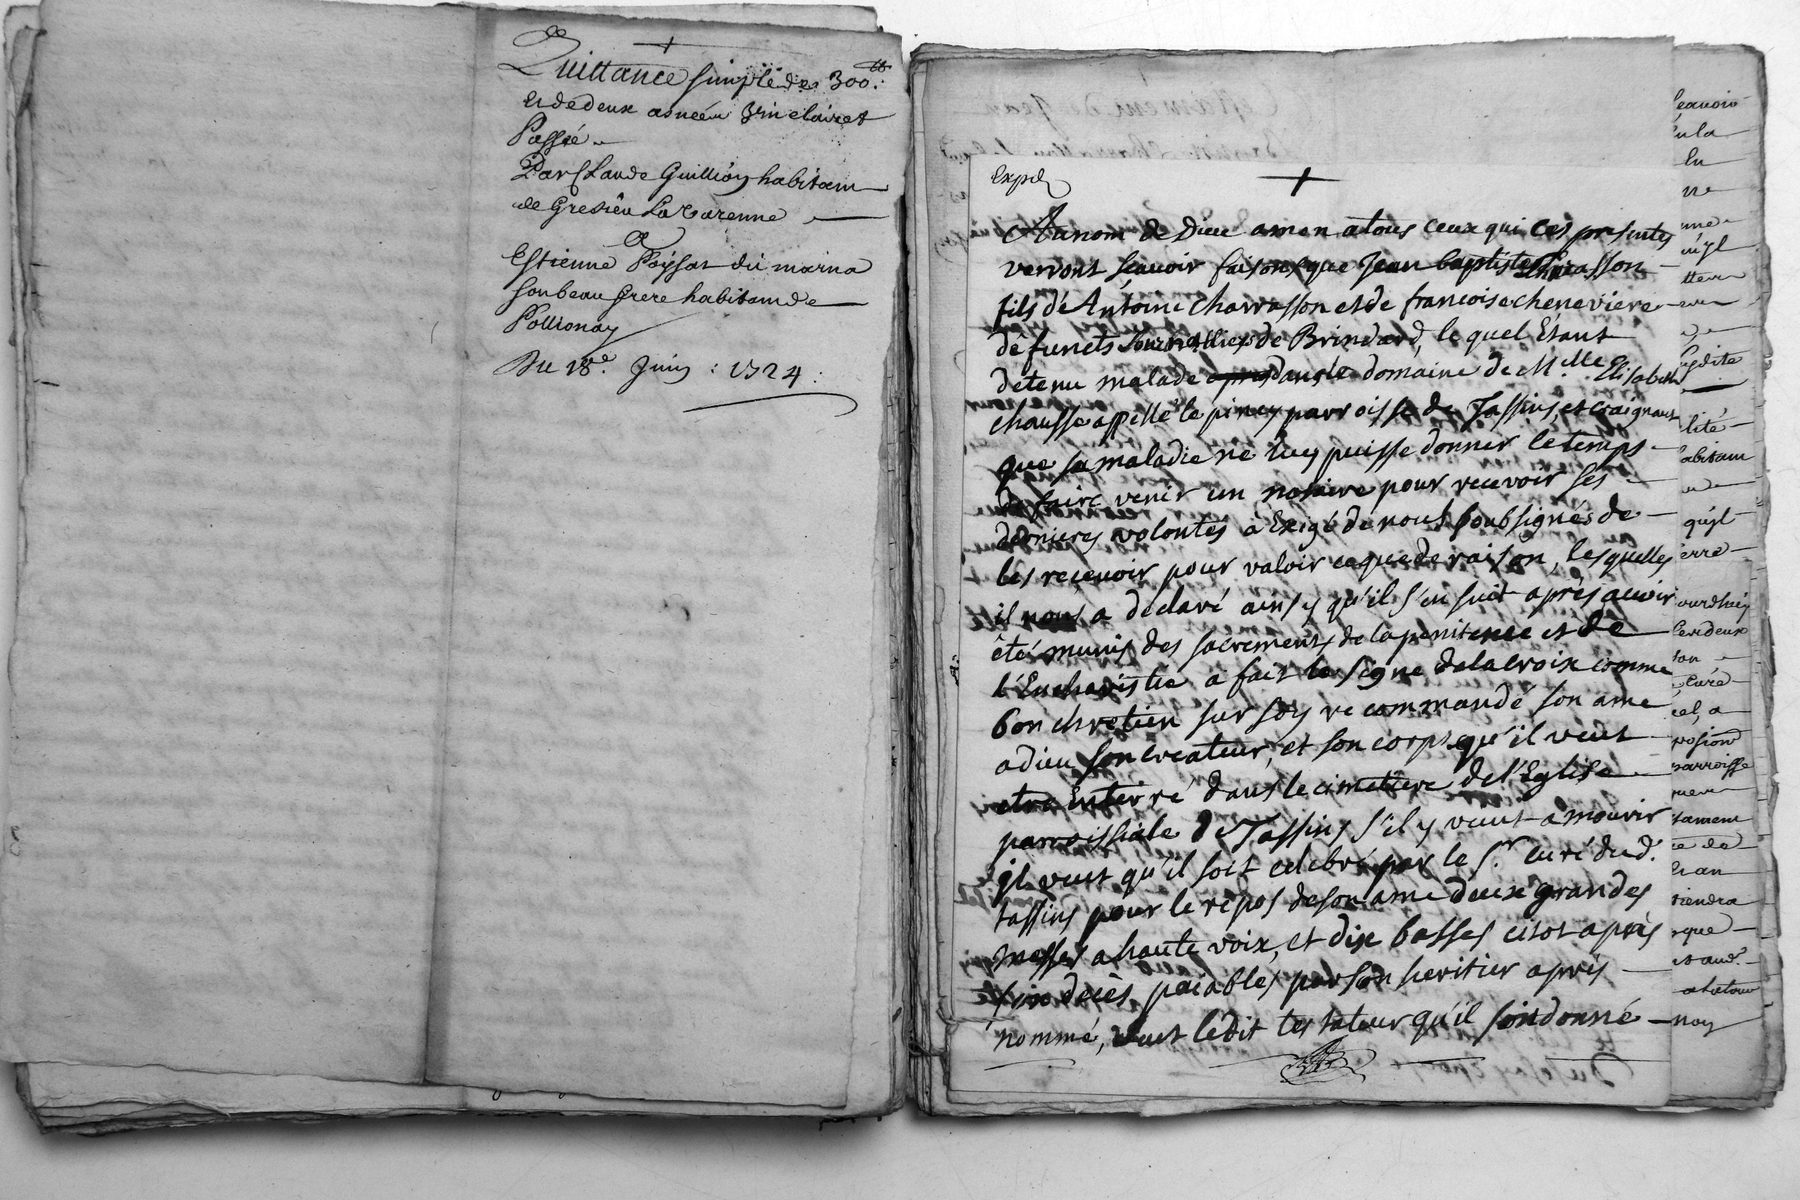 Quittance simple de 300.tt
Et de deux asnéés vin clairet
Passée
Par Claude Guillion habitam
de Gresieu La Varenne
Estienne Poÿsat du marna
son beau frere habitam de
Pollionay
Du 18.e Juin : 1724 :
Expd
Au nom de Dieu amen a tous ceux qui ces presentes
verront sçavoir faisons que Jean baptiste Charasson
fils de Antoine Charrasson et de francoise cheneviere
défuncts de Brindard, le quel Etant
detenu malade dans le domaine de M.elle Elisabeth
chausse appellé le piney parroisse de Tassins, et craignant
que sa maladie ne luy puisse donner le temps
de faire venir un notaire pour recevoir ses
dernieres volontés à Exigé de nous soubsignés de
les recevoir pour valoir ce que de raison, lesquelles
il nous a déclaré ainsy qu'il s'en suit après avoir
êté munis des sacrements de la penitence et de
l'Eucharistie a fait le signe de la croix comme
bon chretien sur soy recommandé son ame
a dieu son createur, et son corps qu'il veut
etre Enterré dans le cimetiere de l'Eglise
paroissiale de Tassins s'il y vient a mourir
jl veut qu'il soit celebré par le S.r curé dud.
tassins pour le repos de son ame deux grandes
messes a haute voix, et dix basses citot après
son decès paiables par son heritier après
nommé, veut ledit testateur qu'il soit donné
sçavoir
en la
En
ne
nne
qu'jl
ttera
suydite
lité
abitam
qu'jl
erre
ourdhuy
les deux
curé
cel, a
parroisse
tament
tiendra
que
noy